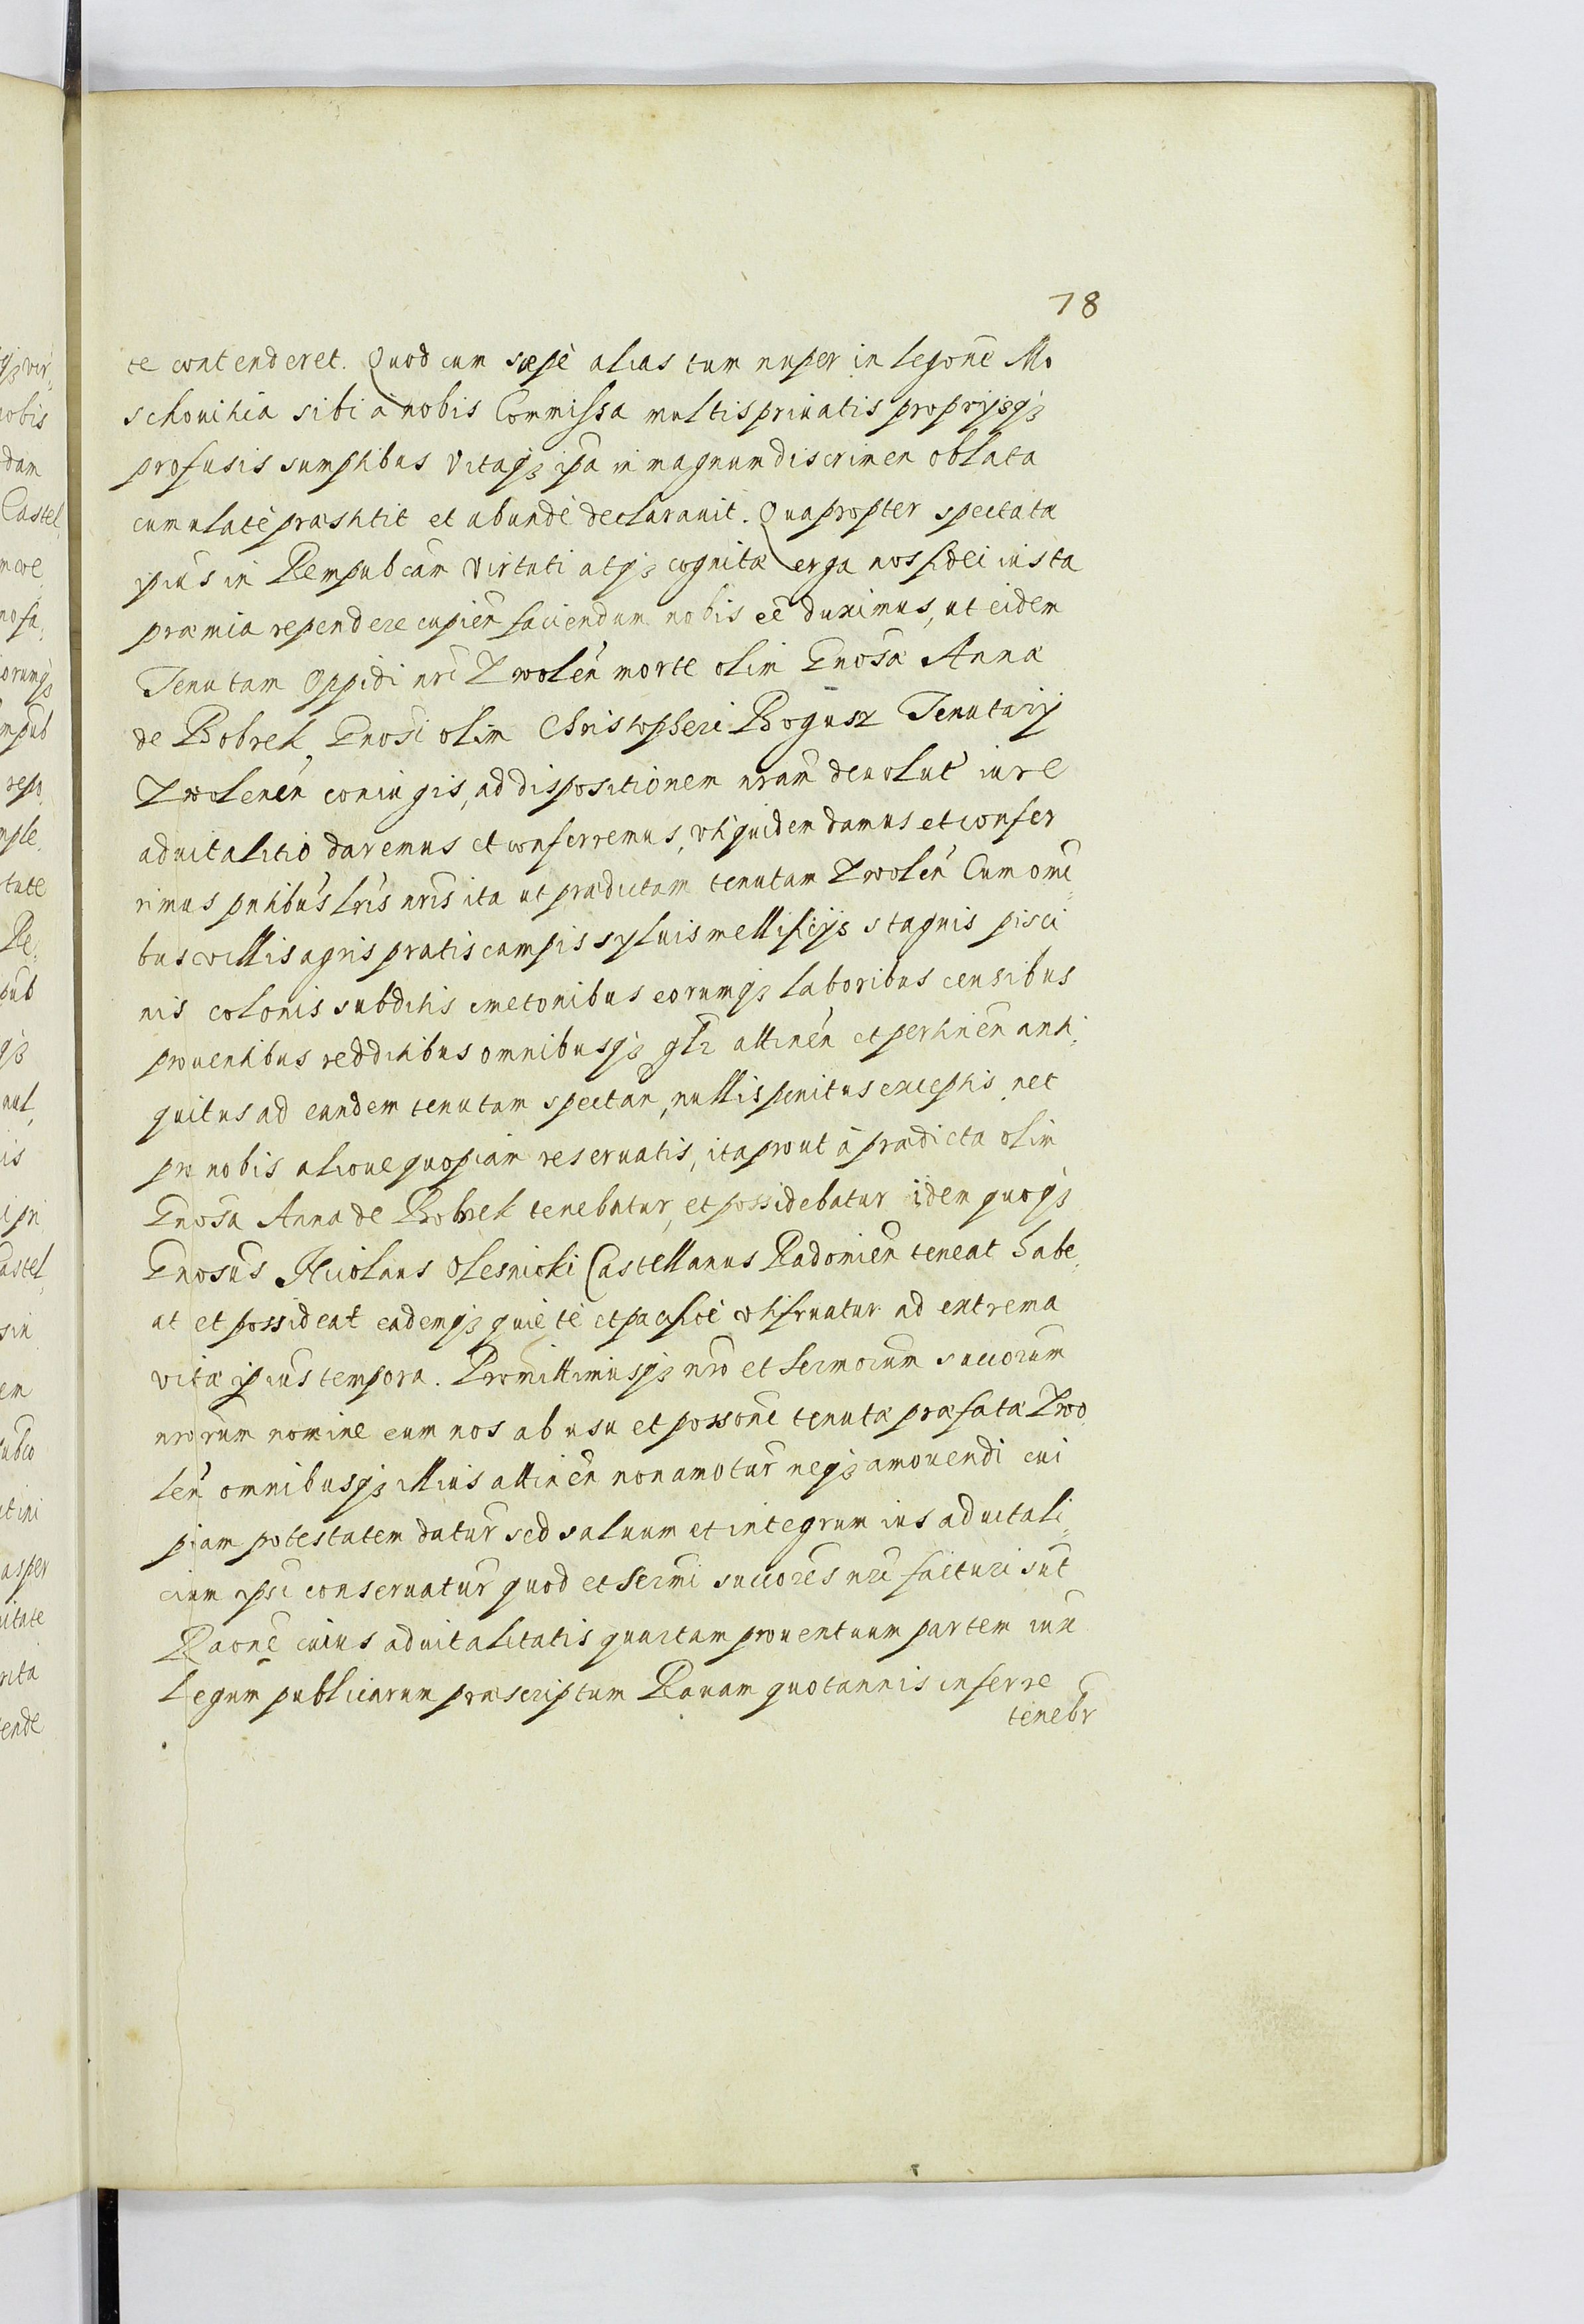 78
te contenderet. Quod cum sæpè alias tum nuper in legone Mo
schovitica sibi à nobis Commissa multis privatis proprijsqз
profusis sumptibus vitaqз ipa in magnum discrimen oblata
cumulatè præstitit et abundè declaravit. Quapropter spectatæ
ipius in Rempubcam virtuti atqз cognitæ erga nos fidei iusta
præmia rependere cupien faciendum nobis eê duximus, ut eidem
Tenutam Oppidi nri Zwolen morte olim Gnosæ Annæ
de Bobrek Gnosi olim Christopheri Bogusz Tenutarij
Zwolenen coniugis, ad dispositionem nram devolut iure
advitalitio daremus et conferremus, vti quidem damus et confer
rimus pntibus lris nris ita ut prædictam tenutam Zwolen Cum omi
bus villis agris pratis campis sylvis mellificijs stagnis pisci
nis colonis subditis cmetonibus eorumqз laboribus censibus
proventibus redditibus omnibusqз glr attinen et pertinen anti
quitus ad eandem tenutam spectan, nullis penitus exceptis nec
pro nobis aliove quopiam reservatis, ita prout à prædicta olim
Gnosa Anna de Bobrek tenebatur, et possidebatur idem quoqз
Gnosus Nicolaus Olesnicki Castellanus Radomien teneat habe
at et possideat eademqз quietè et pacificè vtifruatur ad extrema
vitæ ipius tempora. Promittimusqз nro et Sermorum succorum
nrorum nomine eum nos ab usu et possone tenutæ præfatæ Zwo
len omnibusqз illius attinen non amotur neqз amovendi cui
piam potestatem datur sed salvum et integrum ius advitali
cium ipsi conservatur quod et Sermi succores nri facturi sut
Raone cuius advitalitatis quartam proventuum partem iux
Legum publicarum præscriptum Ravam quotannis inferre
tenebr
qз vir
nobis
dam
Castel